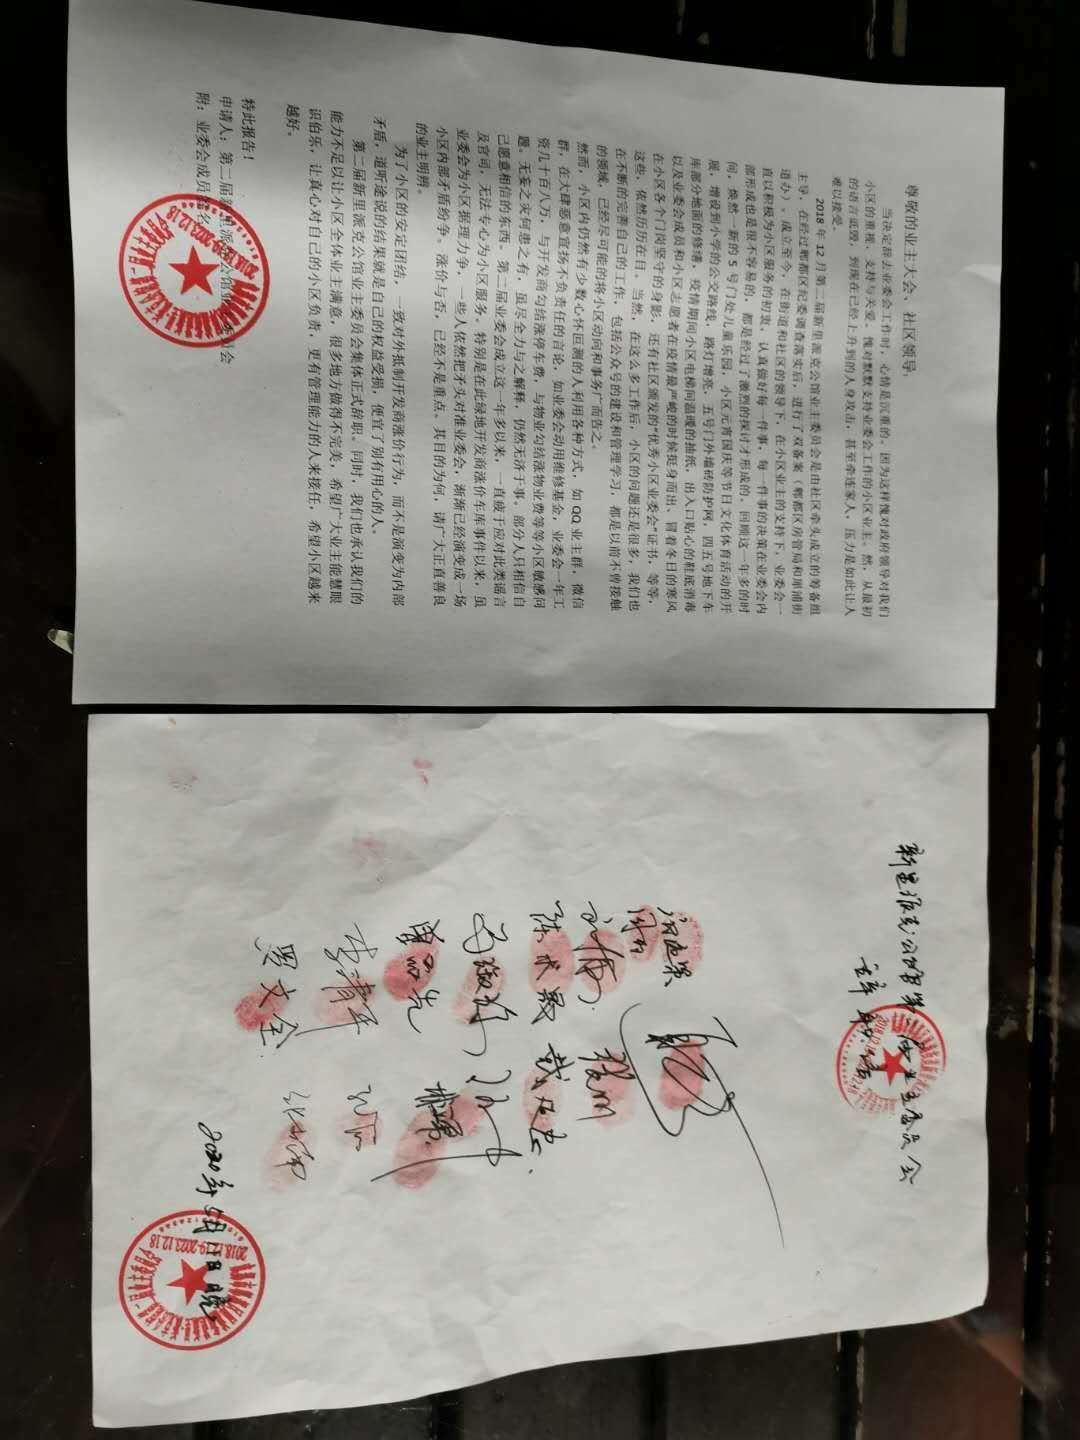 尊敬的业主大会、社区领导：
当决定辞去业委会工作时，心情是沉重的。因为这样愧对政府领导对我们
小区的重视、支持与关爱。愧对默默支持业委会工作的小区业主。然，从最初
的语言诋毁，到现在已经上升到的人身攻击，甚至牵连家人，压力是如此让人
难以接受。
2018 年 12 月第二届新里派克公馆业主委员会是由社区牵头成立的筹备组
主导，在经过郫都区纪委调查落实后，进行了双备案（郫都区房管局和犀浦街
道办），成立至今，在街道和社区的领导下，在小区业主的支持下，业委会一
直以积极为小区服务的初衷，认真做好每一件事，每一件事的决策在业委会内
部形成也是很不容易的，都是经过了激烈的探讨才形成的。回顾这一年多的时
间，焕然一新的 5 号门处儿童乐园，小区元宵国庆等节日文化体育活动的开
展，增设到小学的公交路线，路灯增亮，五号门外墙砖防护网，四五号地下车
库部分地面的修缮，疫情期间小区电梯间温暖的抽纸，出入口贴心的鞋底消毒
以及业委会成员和小区志愿者在疫情最严峻的时候挺身而出，冒着冬日的寒风
在小区各个门岗坚守的身影，还有社区颁发的“优秀小区业委会”证书，等等，
这些，依然历历在目。当然，在这么多工作后，小区的问题还是很多，我们也
在不断的完善自己的工作，包括公众号的建设和管理学习，都是以前不曾接触
的领域，已经尽可能的将小区动向和事务广而告之。
然而，小区内仍然有少数心怀叵测的人利用各种方式，如 QQ 业主群，微信
群，在大肆恶意宣扬不负责任的言论，如业委会动用维修基金，业委会一年工
资几十百八万，与开发商勾结涨停车费，与物业勾结涨物业费等等小区敏感问
题。无妄之灾何患之有，虽尽全力与之解释，仍然无济于事，部分人只相信自
己愿意相信的东西。第二届业委会成立这一年多以来，一直疲于应对此类谣言
及官司，无法专心为小区服务。特别是在此绿地开发商涨价车库事件以来，虽
业委会为小区据理力争，一些人依然把矛头对准业委会，渐渐已经演变成一场
小区内部矛盾纷争。涨价与否，已经不是重点。其目的为何，请广大正直善良
的业主明辨。
为了小区的安定团结，一致对外抵制开发商涨价行为，而不是演变为内部
矛盾，道听途说的结果就是自己的权益受损，便宜了别有用心的人。
第二届新里派克公馆业主委员会集体正式辞职。同时，我们也承认我们的
能力不足以让小区全体业主满意，很多地方做得不完美，希望广大业主能慧眼
识伯乐，让真心对自己的小区负责，更有管理能力的人来接任，希望小区越来
越好。
特此报告！
申请人：第二届新里派克公馆业主委员会
附：业委会成员签名
2018.12.19-2023.12.18
新里派克公馆第二届业主委员会
辞职
2018.12.19-2023.12.18
陈
罗文全
2020年5月15日晚
2018.12.19-2023.12.18